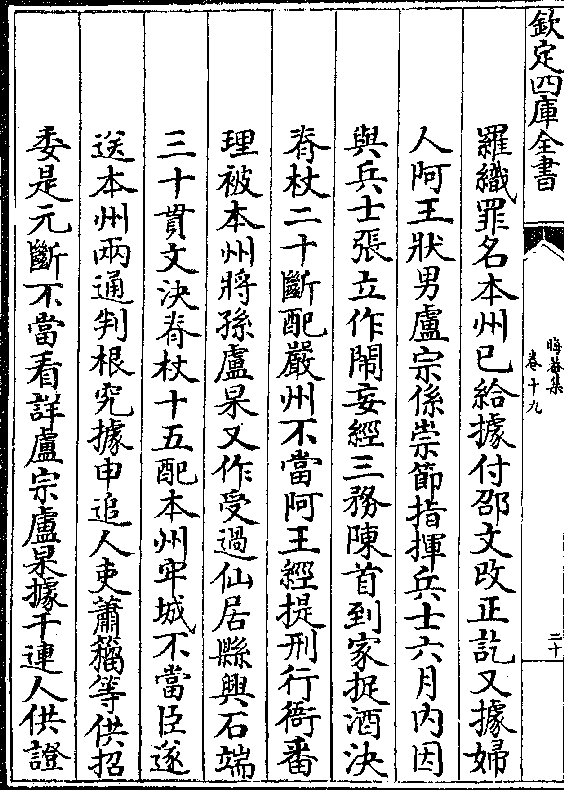 欽定四庫全書
晦菴集
卷十九
二十
羅織罪名本州已給據付邵文改正訖又據婦
人阿王狀男盧宗係崇節指揮兵士六月内因
與兵士張立作鬧妄經三務陳首到家捉酒決
脊杖二十斷配嚴州不當阿王經提刑行衙番
理被本州將孫盧杲又作受過仙居縣興石端
三十貫文決脊杖十五配本州牢城不當臣遂
送本州兩通判根究據申追人吏蕭籀等供招
委是元斷不當看詳盧宗盧杲據干連人供證